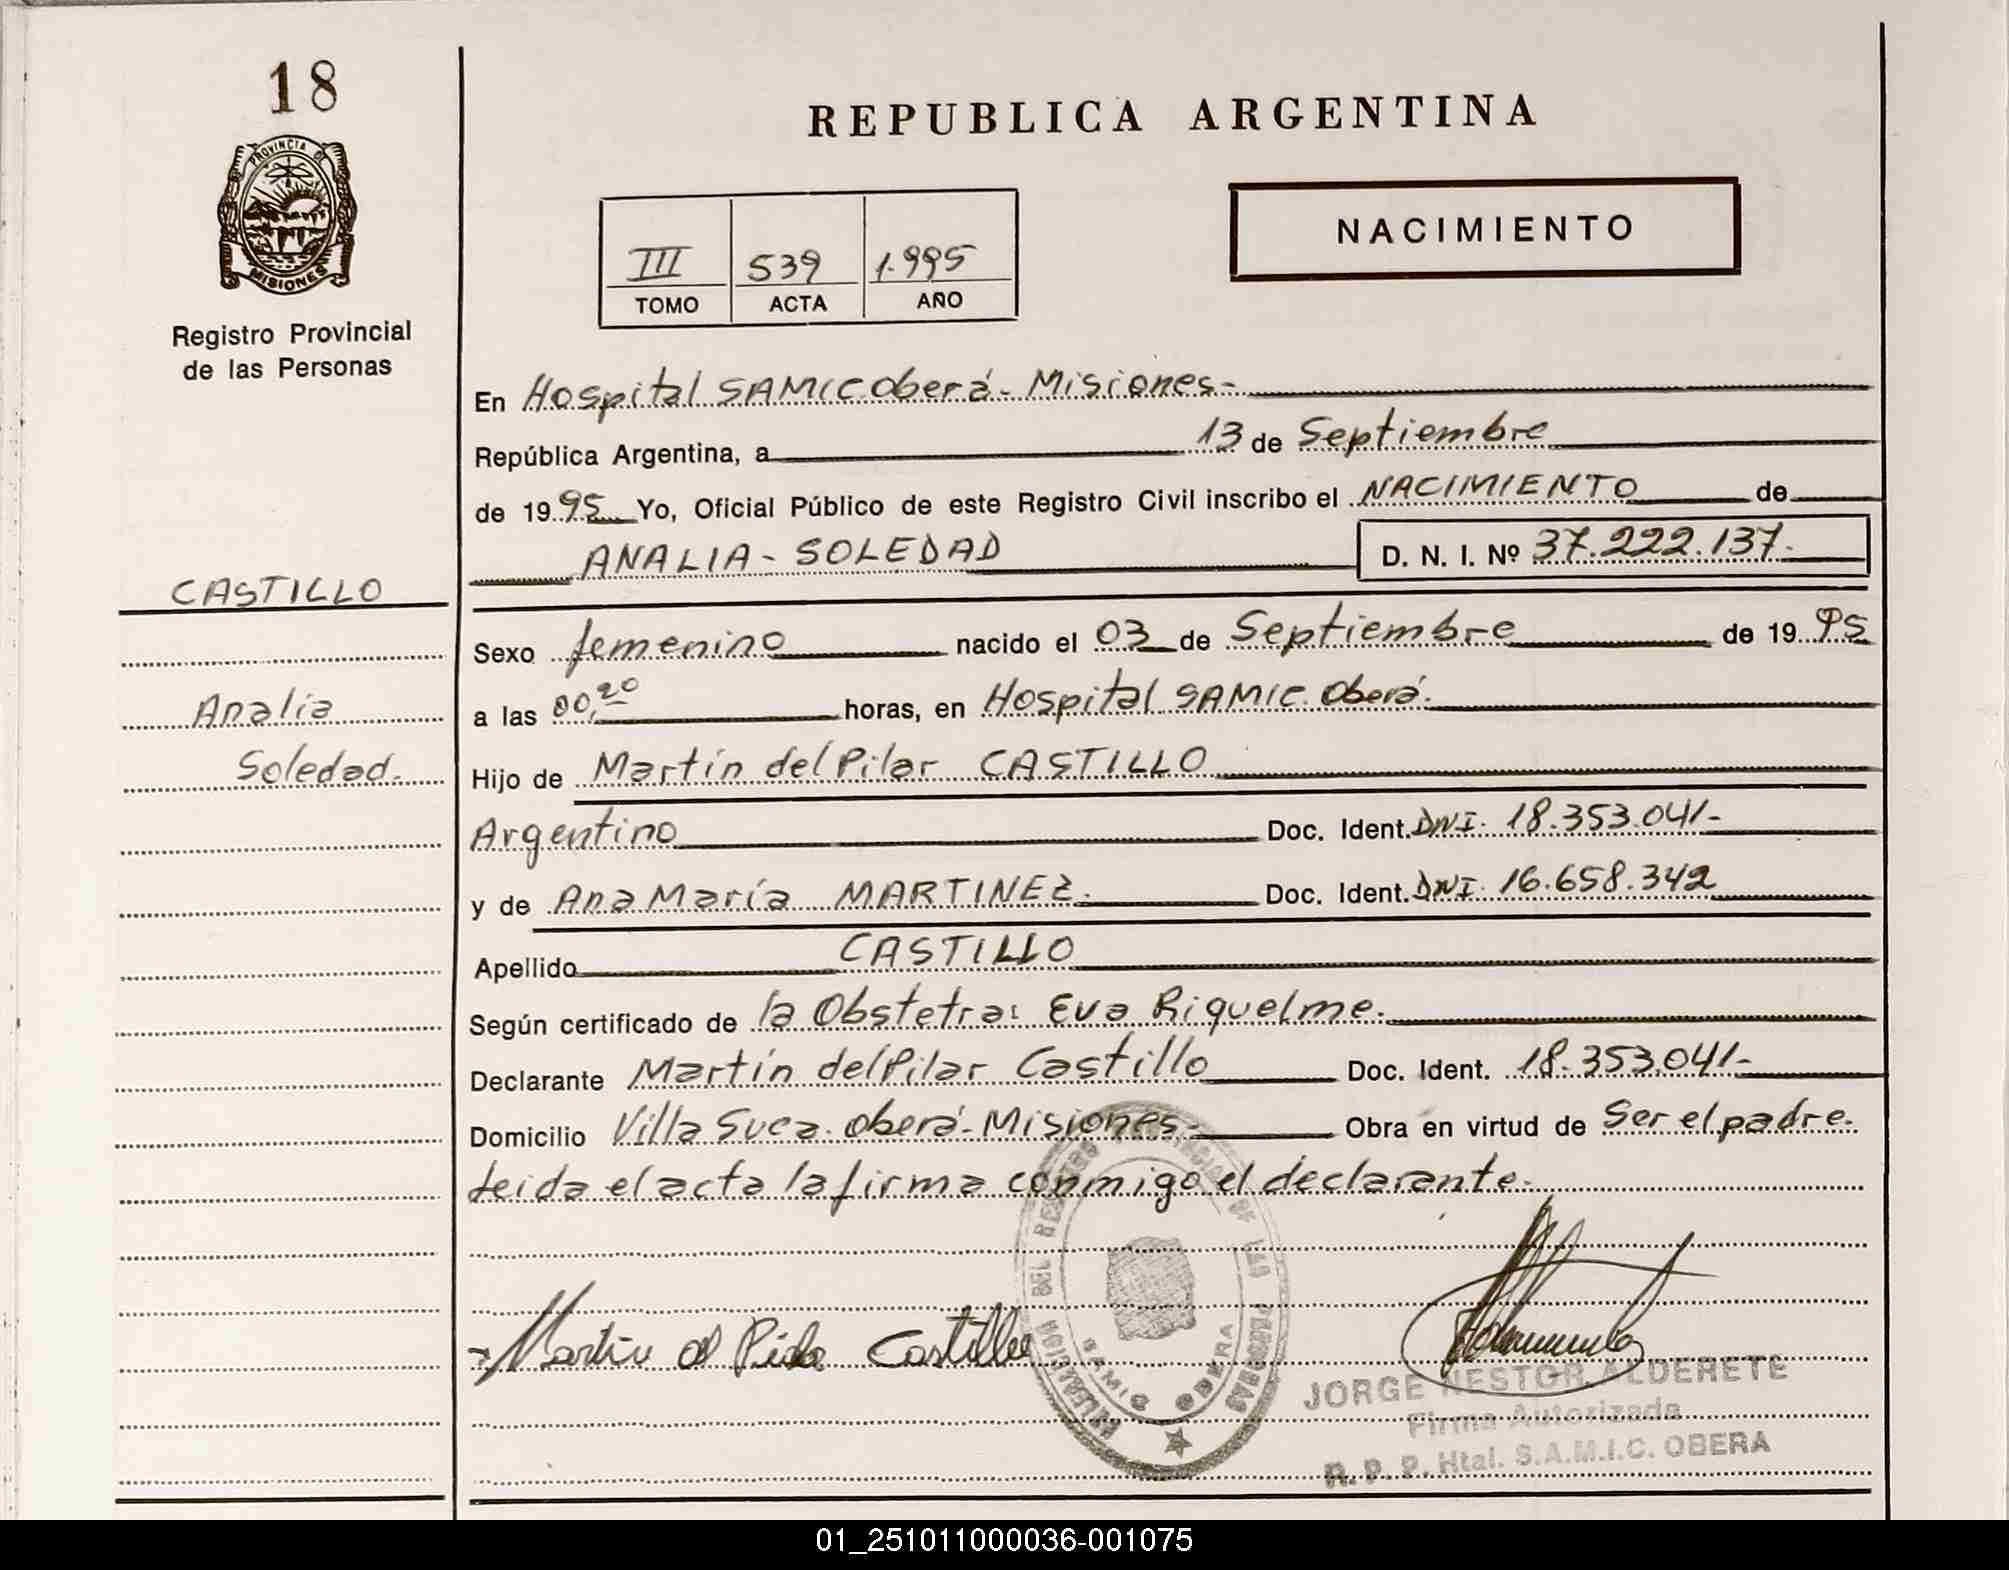 18
PROVINCIA DE
MISIONES
Registro Provincial
de las Personas
CASTILLO
Analia
Soledad.
REPUBLICA ARGENTINA
NACIMIENTO
III 539 1.995
TOMO ACTA AÑO
En Hospital SAMIC Oberá - Misiones -
República Argentina, a 13 de Septiembre
de 19 95 Yo, Oficial Público de este Registro Civil inscribo el NACIMIENTO de
ANALIA - SOLEDAD D. N. I. Nº 37.222.137.
Sexo femenino nacido el 03 de Septiembre de 19 95
a las 00,20 horas, en Hospital SAMIC Oberá.
Hijo de Martín del Pilar CASTILLO
Argentino Doc. Ident. DNI. 18.353.041-
y de Ana María MARTINEZ. Doc. Ident. DNI. 16.658.342
Apellido CASTILLO
Según certificado de la Obstetra: Eva Riquelme.
Declarante Martín del Pilar Castillo Doc. Ident. 18.353.041-
Domicilio Villa Suca. Oberá - Misiones - Obra en virtud de Ser el padre.
Leida el acta la firma conmigo el declarante.
DEL REGISTRO PROVINCIAL DE LAS PERSONAS
SAMIC OBERA
Martin del Pilar Castillo
JORGE NESTOR ALDERETE
Firma Autorizada
R. P. P. Htal. S.A.M.I.C. OBERA
01_251011000036-001075